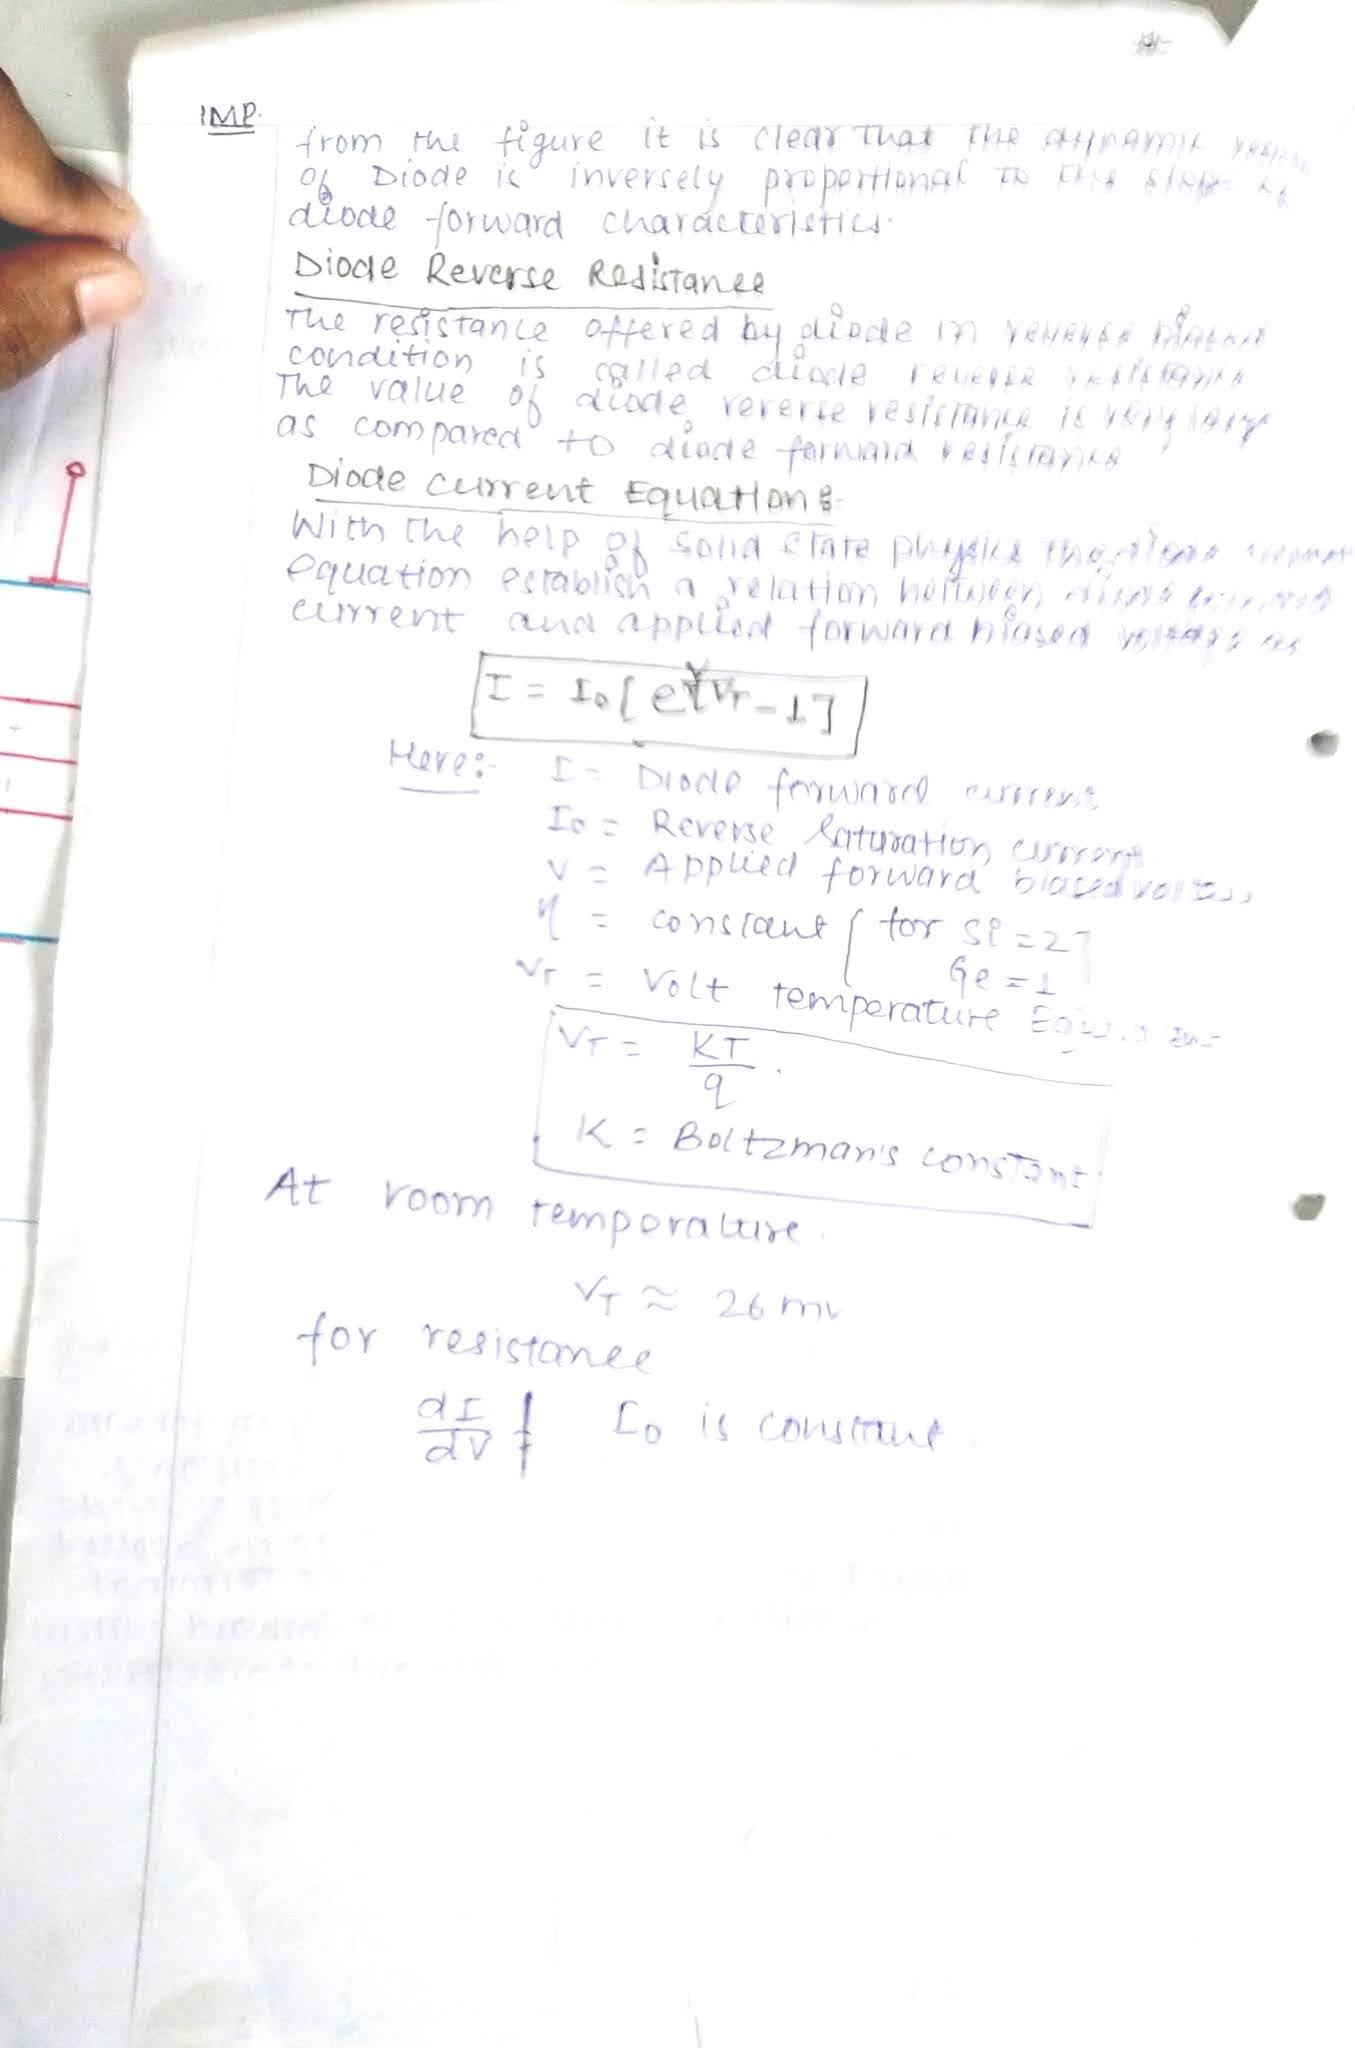 IMP.
from the figure it is clear that the dynamic
of Diode is inversely proportional to the slope of
diode forward characteristics.
Diode Reverse Resistance
The resistance offered by diode in reverse biased
condition is called diode reverse resistance
The value of diode reverse resistance is very large
as compared to diode forward resistance
Diode Current Equation :-
With the help of solid state physics the diode current
equation establish a relation between diode forward
current and applied forward biased voltage as
I = I₀ [ e^V/ηVT - 1 ]
Here:- I = Diode forward current
I₀ = Reverse Saturation current
V = Applied forward biased voltage
η = constant [ for Si = 2 ]
Ge = 1
VT = Volt temperature
VT = KT/q .
K = Boltzman's constant
At room temperature.
VT ≈ 26 mv
for resistance
dI/dV I₀ is constant